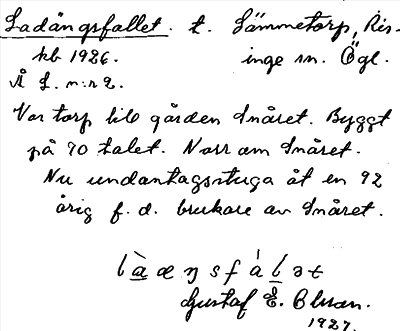 Ladängsfallet. t. Lämmetorp, Ris-
kb 1926. inge sn. Ögl.
Å L. n:r 2.
Var torp till gården Snåret. Byggt
på 70 talet. Norr om Snåret.
Nu undantagsstuga åt en 92
årig f. d. brukare av Snåret.
làæŋsfálət
Gustaf E. Bluan.
1927.